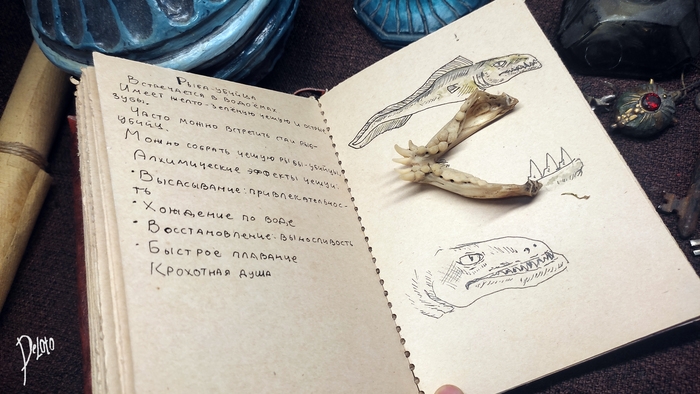 Рыба-убийца
Встречается в водоёмах
Имеет желто-зелёную чешую и острые
зубы.
Часто можно встретить стаи рыб-
убийц.
Можно собрать чешую рыбы-убийцы
Алхимические эффекты чешуи:
• Высасывание: привлекательнос-
ть
• Хождение по воде
• Восстановление: выносливость
• Быстрое плавание
Крохотная душа
DeLoto